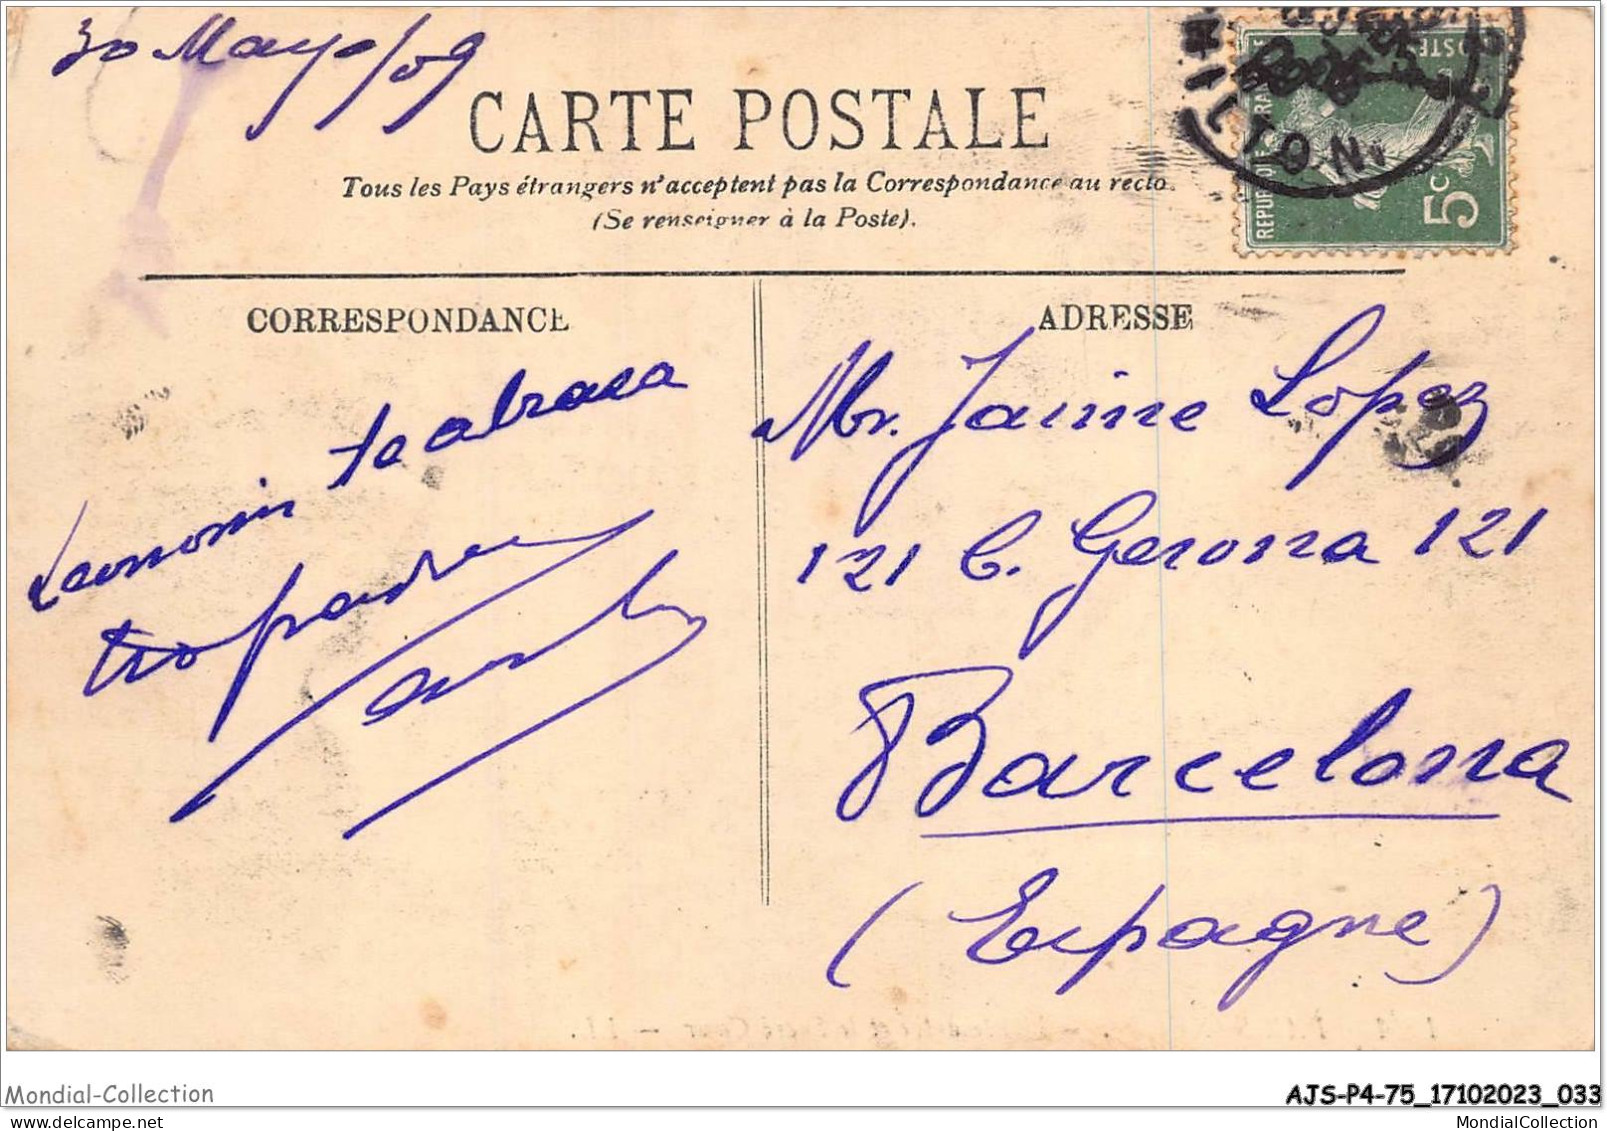 30 Mayo/09
CARTE POSTALE
Tous les Pays étrangers n'acceptent pas la Correspondance au recto.
(Se renseigner à la Poste).
REPUB
POSTES
5c
CORRESPONDANCE
ADRESSE
te abraza
tu padre
Mr. Jaime Lopez
121 C. Gerona 121
Barcelona
(Espagne)
Mondial-Collection
AJS-P4-75_17102023_033
MondialCollection